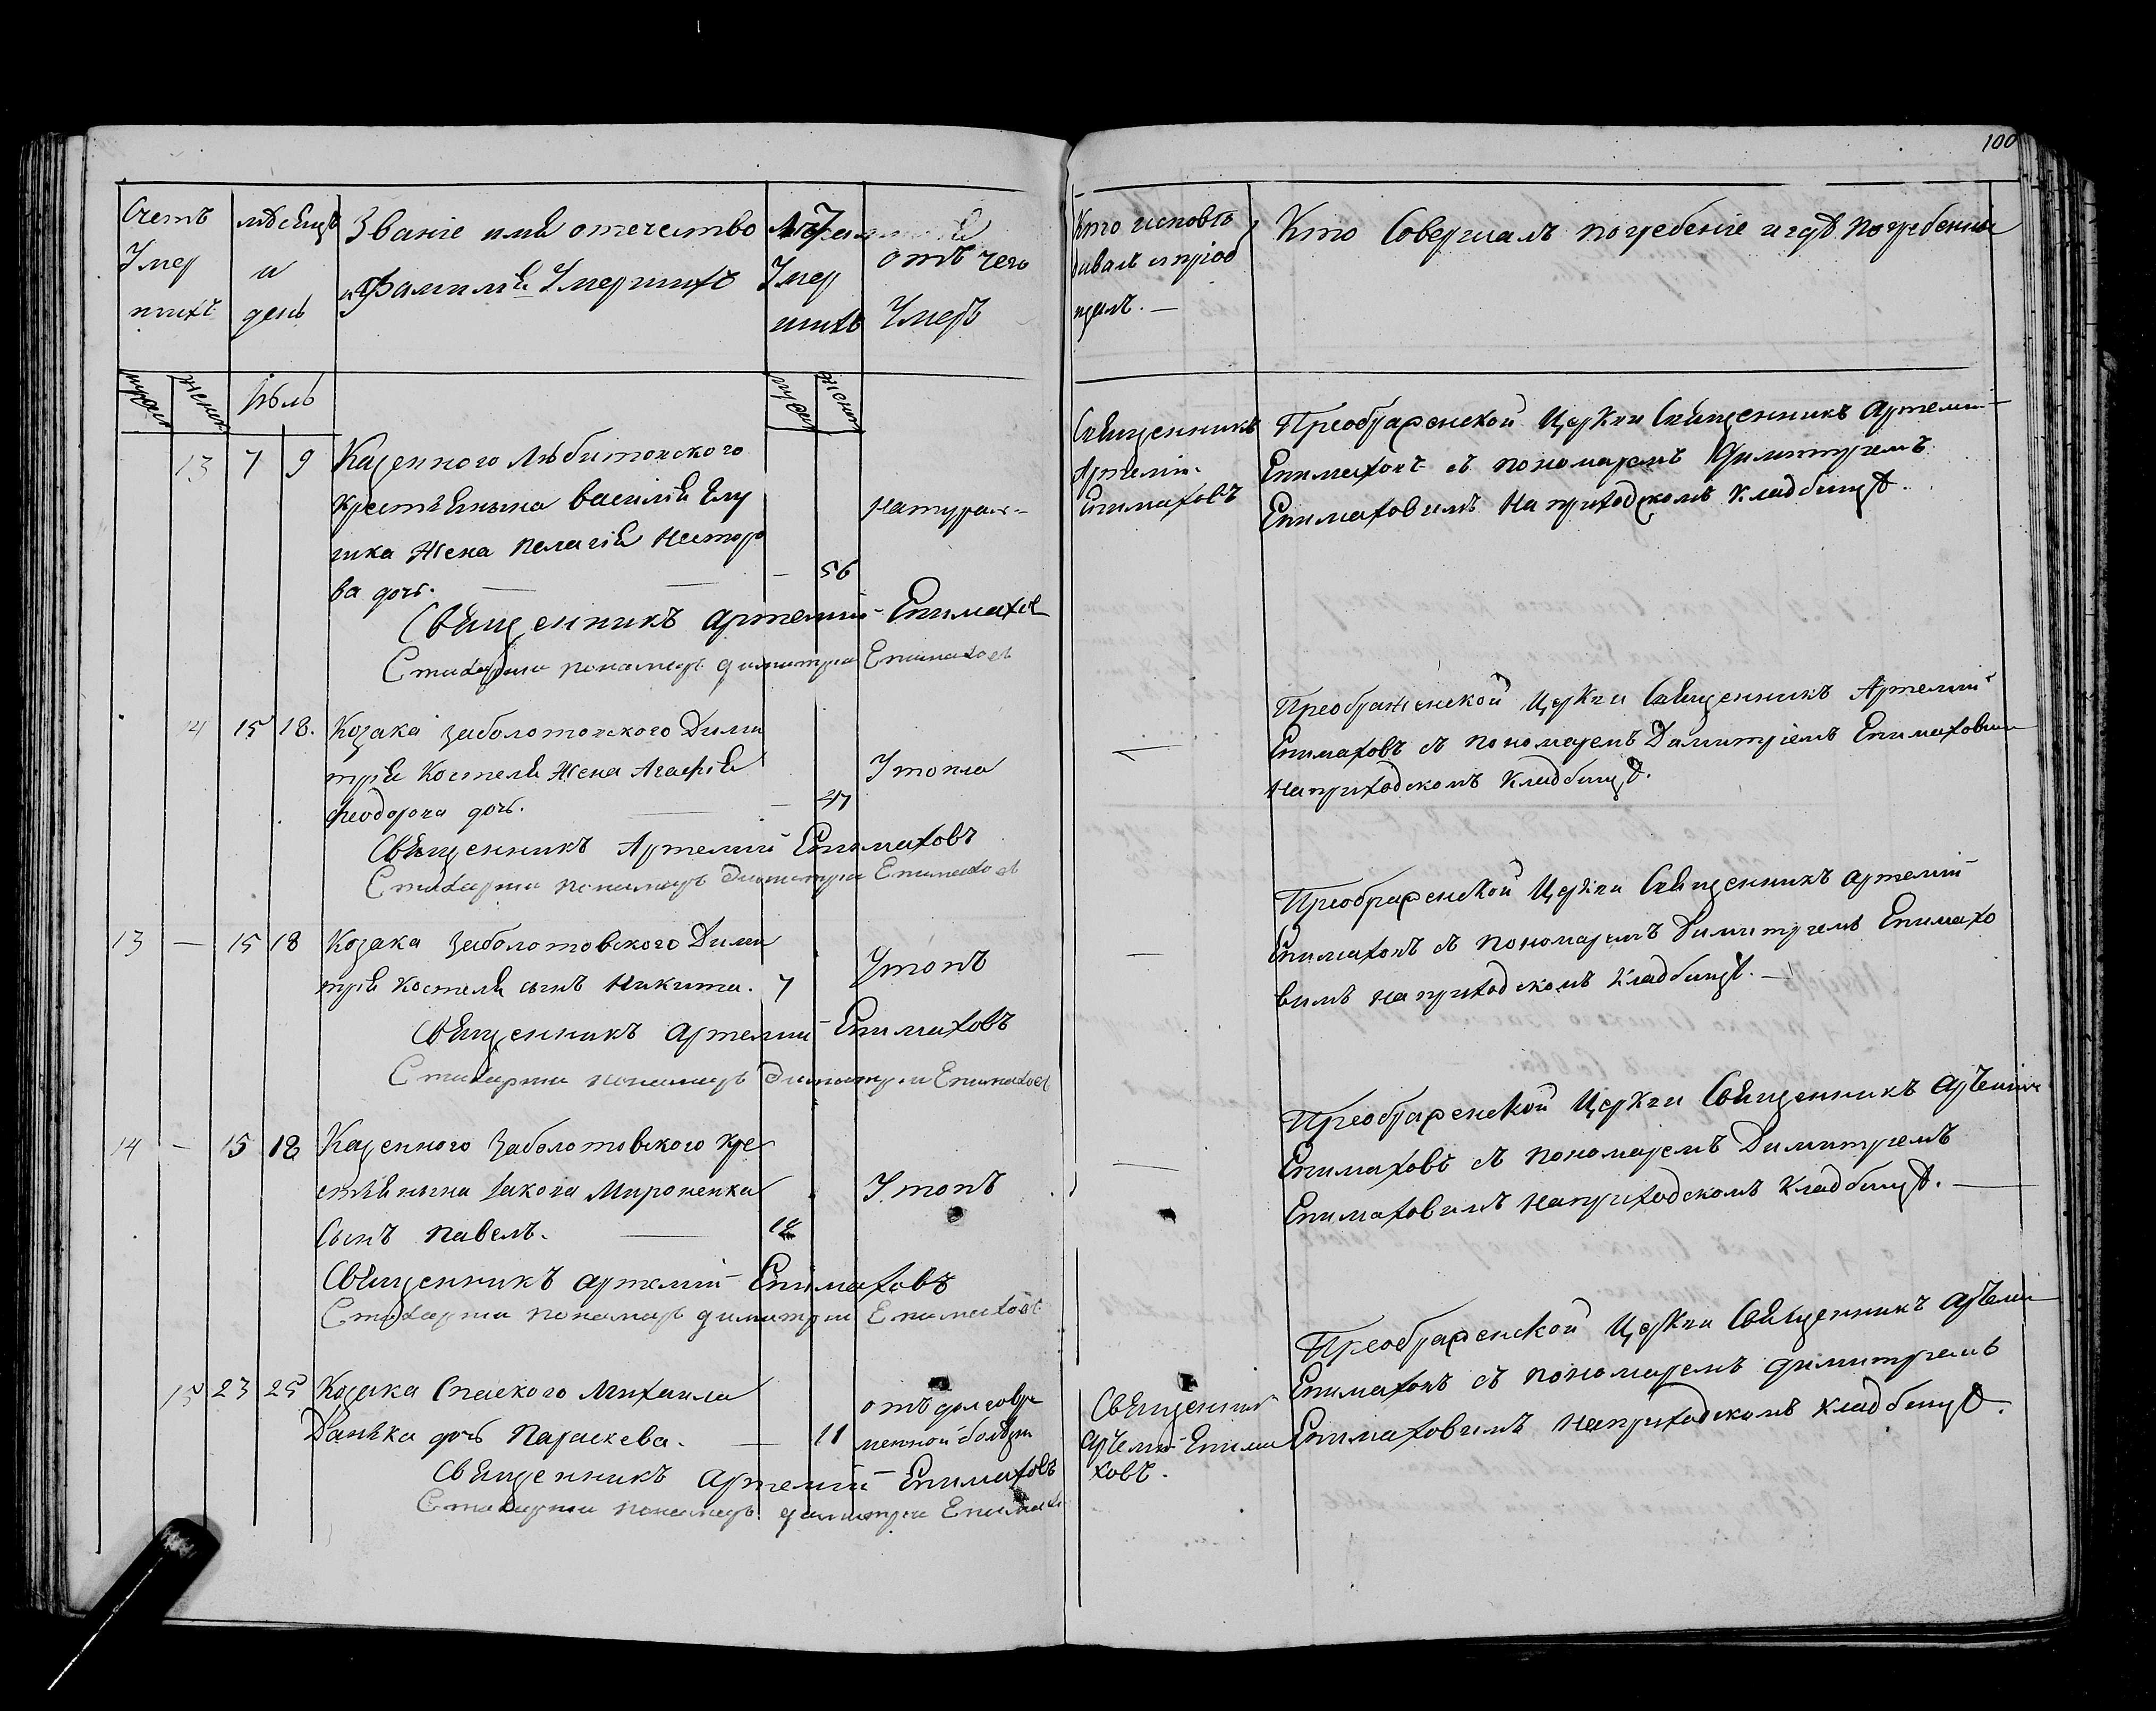 100
Счетъ Умер шихъ
мѣсяцъ и день
Званіе имя отечество
и Фамилія Умершихъ
Умер шихъ
отъ чего Умеръ
Кто исповѣ
дивалъ и пріоб
щалъ. —
Кто Совершалъ погребеніе и гдѣ погребенны
мужес женск
Іюль
мужес женск
13 7 9 Казенного Любитовского
крестьянина Василія
жена Пелагія Несторо
ва дочь. — — — 56
Натурал-
Священникъ Артемій Епимаховъ
Стихарни пономаръ Димитріи Епимаховъ
Священникъ
Артемій
Епимаховъ
Преображенской Церкви Священникъ Артемій
Епимаховъ съ пономаремъ Димитріемъ
Епимаховимъ На приходскомъ кладбищѣ.
14 15 18. Козака Заболотовского Дими
трія Костеля жена Агафія
Феодорова дочь. — — 47
Утопла
Священникъ Артемій Епимаховъ
Стихарни пономаръ Димитріи Епимаховъ
—
Преображенской Церкви Священникъ Артемій
Епимаховъ съ пономаремъ Димитріемъ Епимаховим
На приходскомъ кладбищѣ.
13 — 15 18 Козака Заболотовского Дими
трія Костеля сынъ Никита. 7
Утопъ
Священникъ Артемій Епимаховъ
Стихарни пономаръ Димитріи Епимаховъ
—
Преображенской Церкви Священникъ Артемій
Епимаховъ съ пономаремъ Димитріемъ Епимахо
вимъ на приходскомъ кладбищѣ. —
14 — 15 18 Казенного Заболотовского кре
стянина Іакова Мироненка
Сынъ Павелъ. —
Утопъ
Священникъ Артемій Епимаховъ
Стихарни пономаръ Димитріи Епимаховъ
—
Преображенской Церкви Священникъ Артемій
Епимаховъ съ пономаремъ Димитріемъ
Епимаховимъ на приходскомъ кладбищѣ. —
15 23 25 Козака Спаского Михаила
Данька дочь Параскева. — 11
отъ долговре
менной болѣзни
Священникъ Артемій Епимаховъ
Стихарни пономаръ Димитріи Епимахо
Священникъ
Артемій Епима
ховъ.
Преображенской Церкви Священникъ Артеми
Епимаховъ съ пономаремъ Димитріемъ
Епимаховимъ на приходскомъ кладбищѣ.